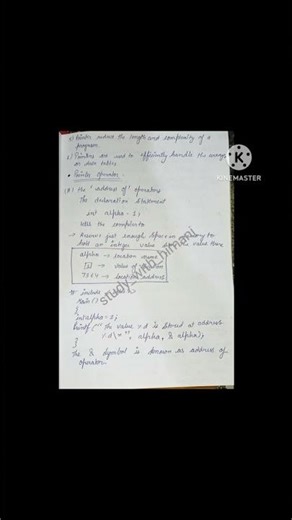 5) Pointer reduce the length and complexity of a
program
6) Pointers are used to efficiently handle the arrays
or data tables
KINEMASTER
• Pointer operator -
(1) the 'address of' operators
The declaration statement
int alpha = 5;
tells the compiler to
→ Reserve just enough space in memory to
hold an integer value
alpha → location name
[5] → value of location
7864 → location address
study_with_himani
# include
main()
{
int alpha = 5;
printf("The value %d is stored at address
alpha, & alpha);
}
The & symbol is known as address of
operator.